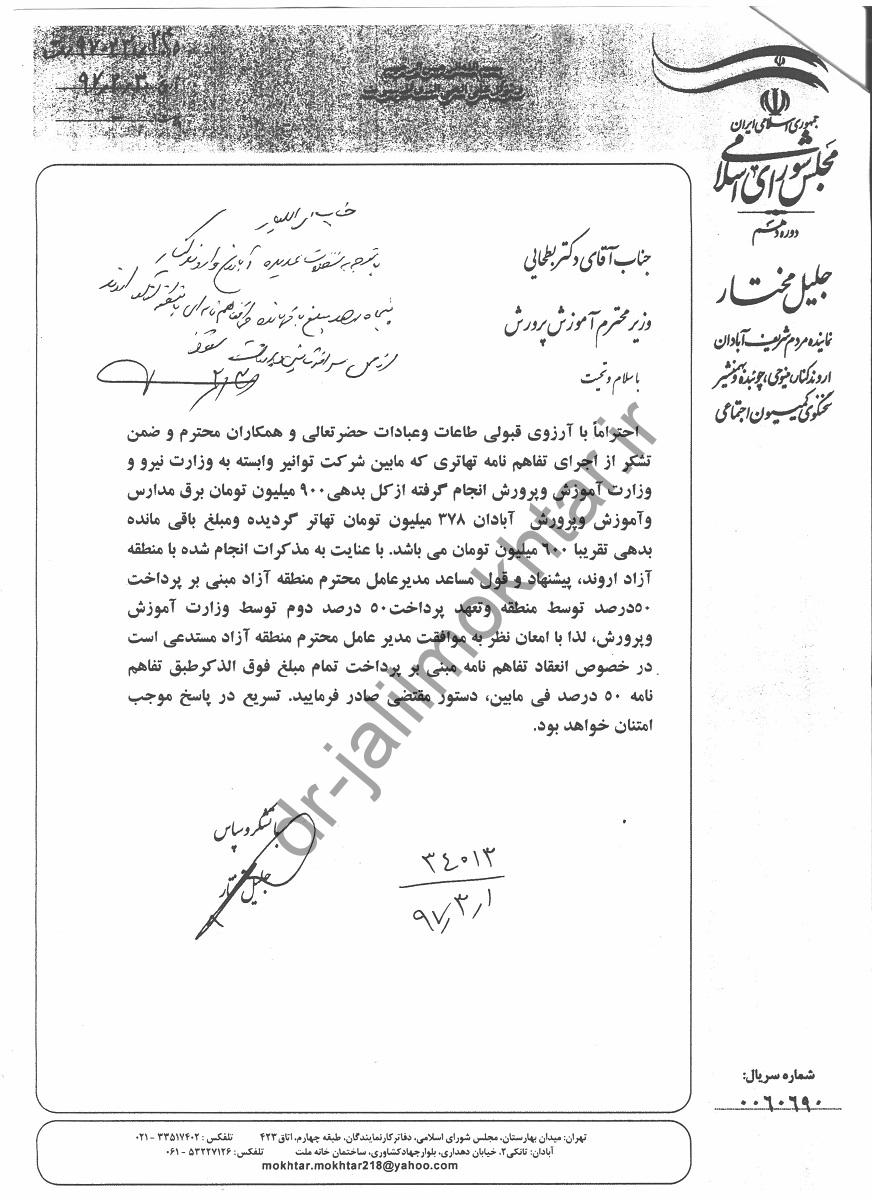 جمهوری اسلامی ایران
مجلس شورای اسلامی
دوره دهم
جلیل مختار
نماینده مردم شریف آبادان
اروندکنار، مینوحی، چوئبده و بهمنشیر
سخنگوی کمیسیون اجتماعی
۹۷/۲/۳۰
جناب آقای دکتر بطحایی
وزیر محترم آموزش پرورش
با سلام و تحیت
با توجه به مشکلات عدیده آبادان و اروندکنار
احتراماً با آرزوی قبولی طاعات وعبادات حضرتعالی و همکاران محترم و ضمن
تشکر از اجرای تفاهم نامه تهاتری که مابین شرکت توانیر وابسته به وزارت نیرو و
وزارت آموزش وپرورش انجام گرفته ازکل بدهی۹۰۰ میلیون تومان برق مدارس
وآموزش وپرورش آبادان ۳۷۸ میلیون تومان تهاتر گردیده ومبلغ باقی مانده
بدهی تقریبا ۶۰۰ میلیون تومان می باشد. با عنایت به مذکرات انجام شده با منطقه
آزاد اروند، پیشنهاد و قول مساعد مدیرعامل محترم منطقه آزاد مبنی بر پرداخت
۵۰درصد توسط منطقه وتعهد پرداخت۵۰ درصد دوم توسط وزارت آموزش
وپرورش، لذا با امعان نظر به موافقت مدیر عامل محترم منطقه آزاد مستدعی است
در خصوص انعقاد تفاهم نامه مبنی بر پرداخت تمام مبلغ فوق الذکرطبق تفاهم
نامه ۵۰ درصد فی مابین، دستور مقتضی صادر فرمایید. تسریع در پاسخ موجب
امتنان خواهد بود.
با تشکر و سپاس
جلیل مختار
۳۴۰۱۳
۹۷/۳/۱
dr-jalilmokhtar.ir
شماره سریال:
۰۰۶۰۶۹۰
تهران: میدان بهارستان، مجلس شورای اسلامی، دفاترکارنمایندگان، طبقه چهارم، اتاق۴۲۳ تلفکس : ۳۳۵۱۷۴۰۲ - ۰۲۱
آبادان: تانکی۲، خیابان دهداری، بلوارجهادکشاورزی، ساختمان خانه ملت تلفکس: ۵۳۲۲۷۱۲۶ - ۰۶۱
mokhtar.mokhtar218@yahoo.com